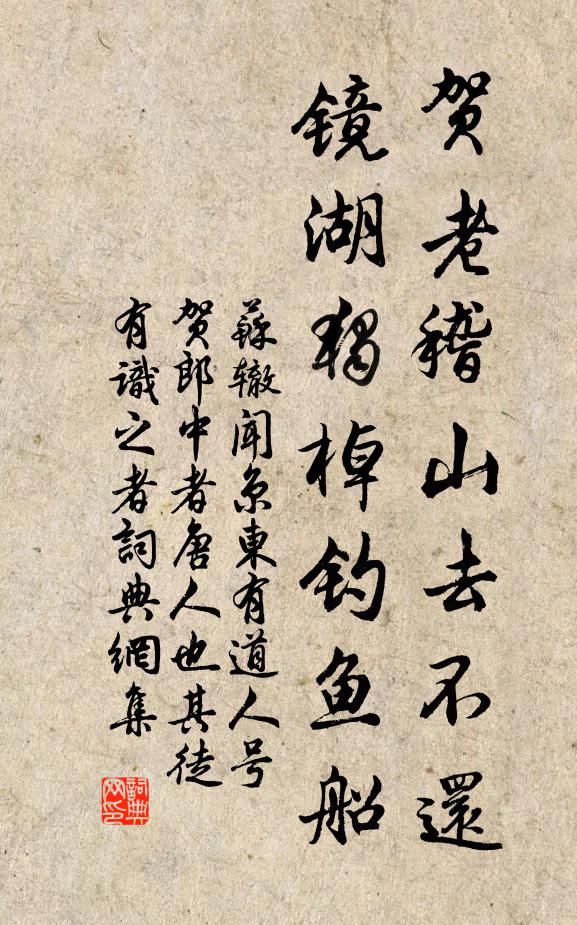 贺老稽山去不還
镜湖独棹钓鱼船
蘇辙闻京東有道人号
贺郎中者唐人也其徒
有識之者詞典網集
詞典网印